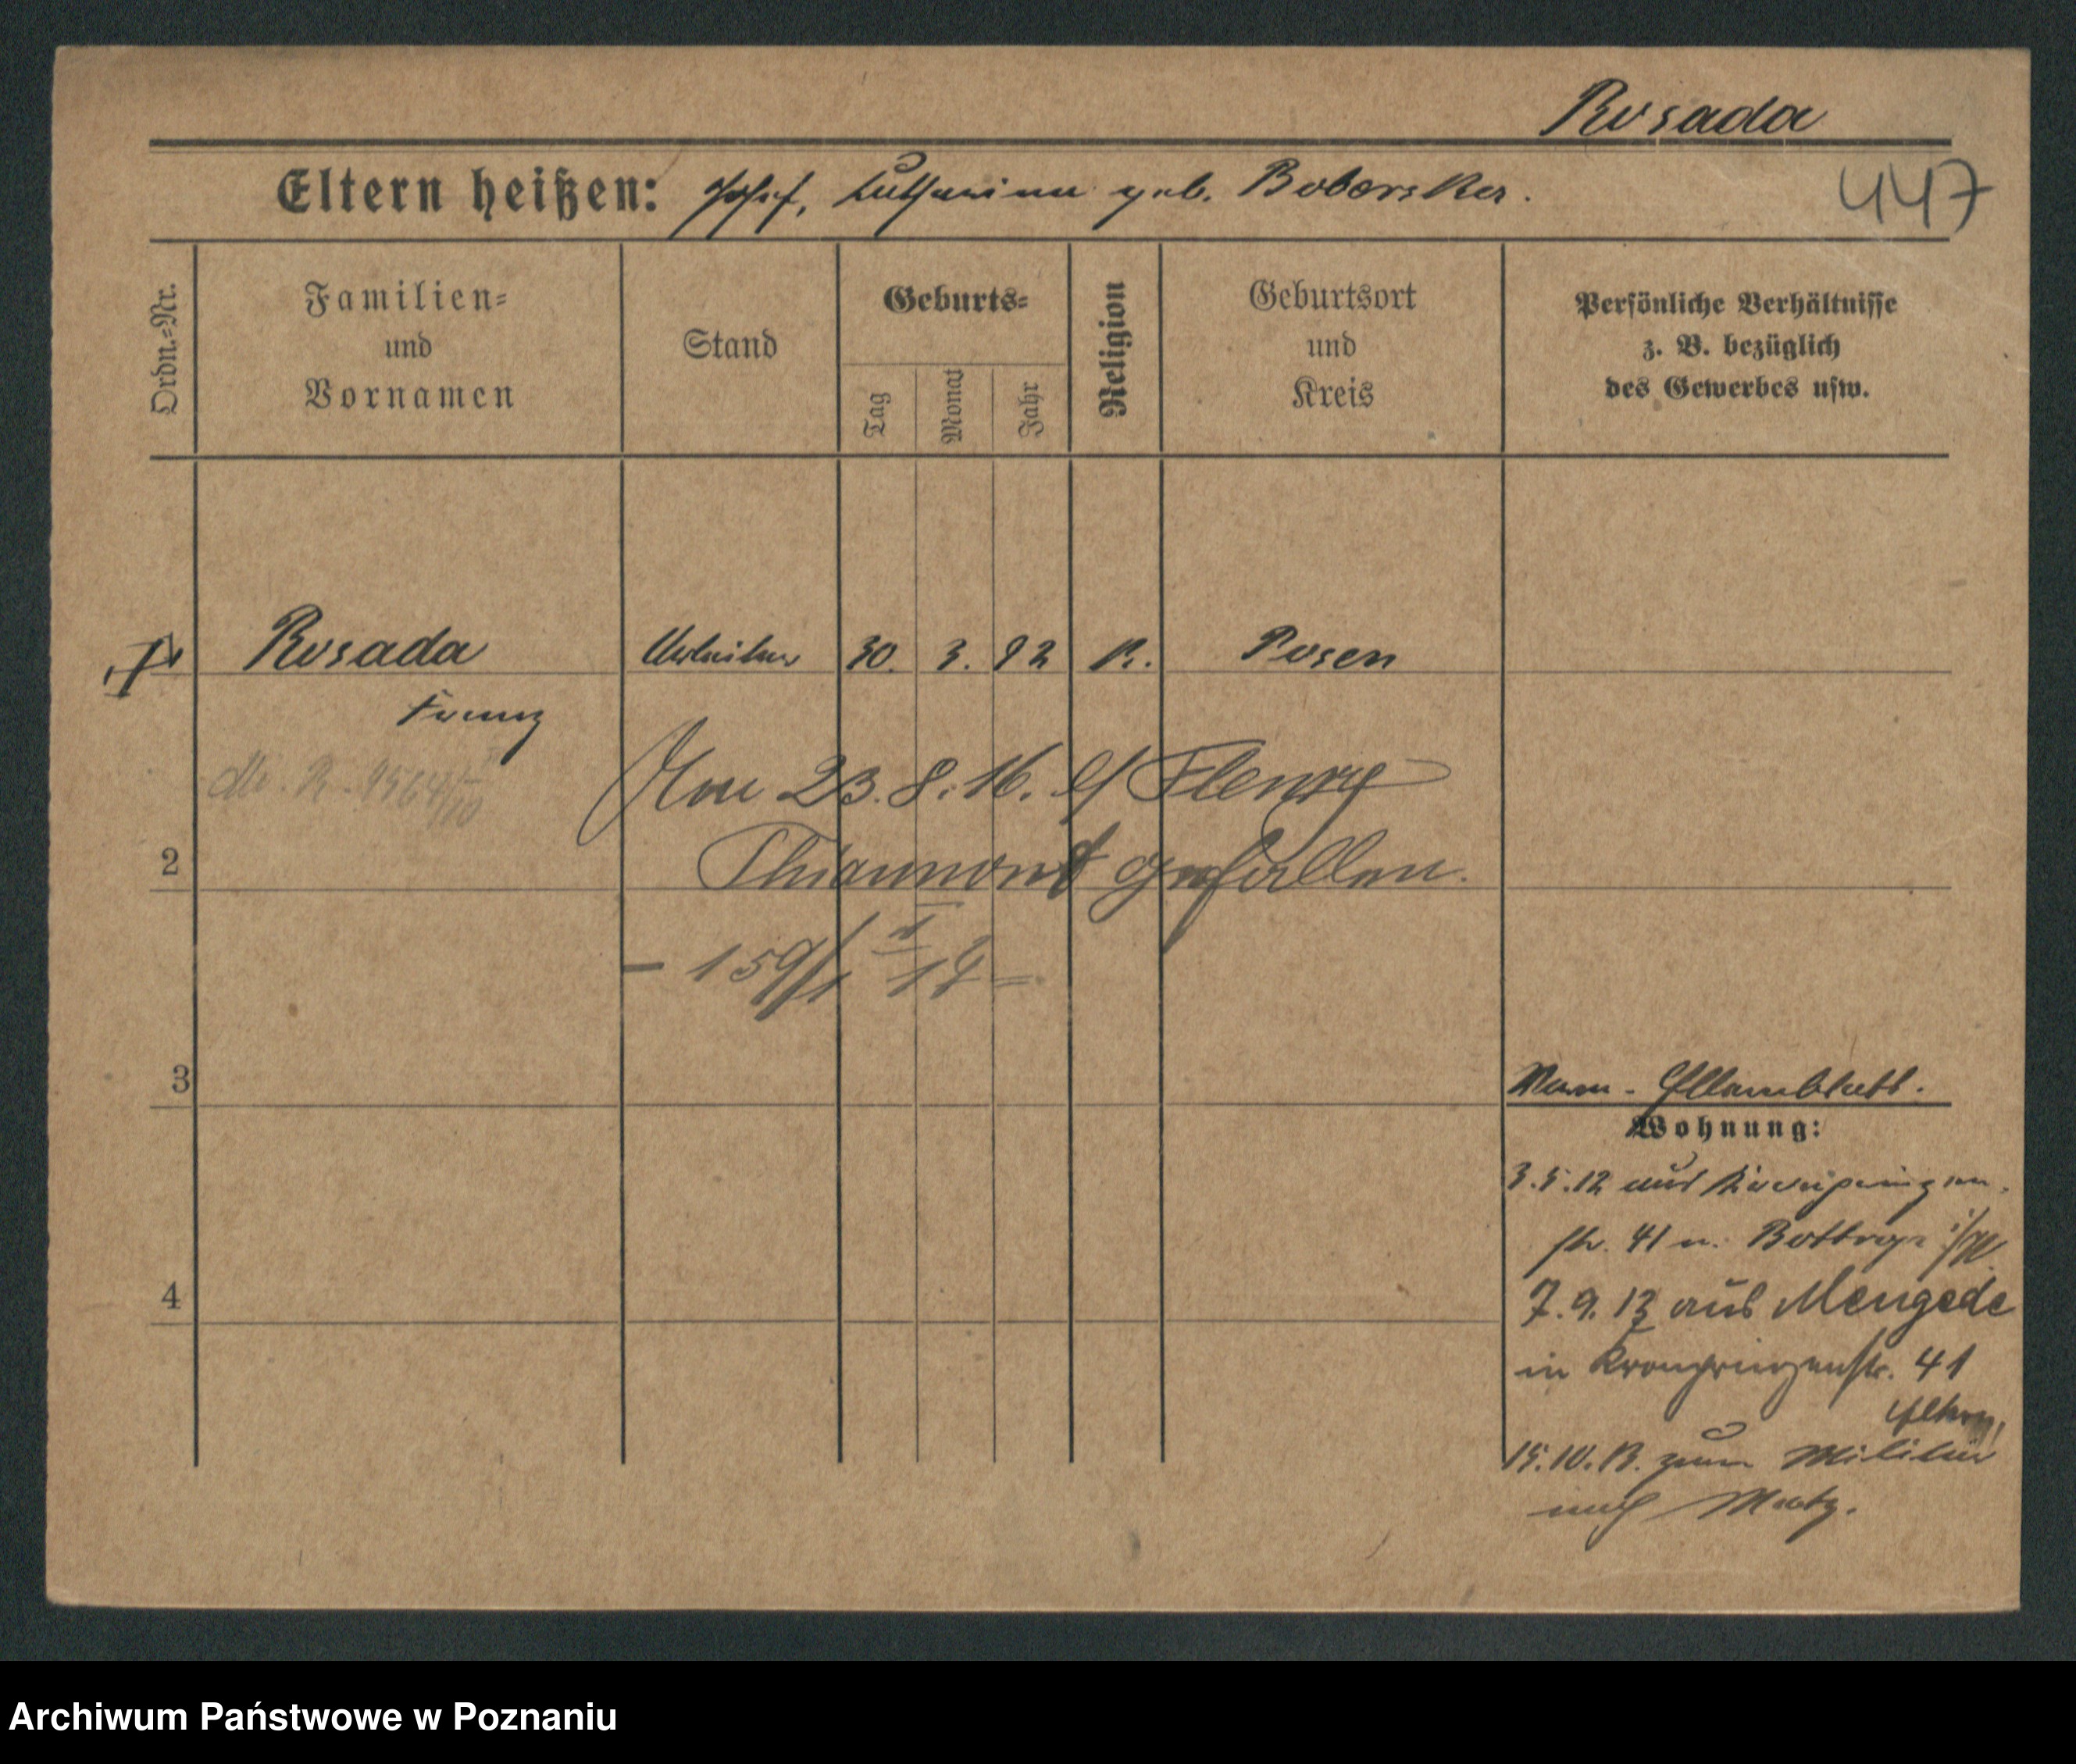 Rosada
Eltern heißen: Josef, Katharina geb. Boberska.
447
Ordn.=Nr.
Familien=
und
Vornamen
Stand
Geburts=
Tag
Monat
Jahr
Religion
Geburtsort
und
Kreis
Persönliche Verhältnisse
z. B. bezüglich
des Gewerbes usw.
1 Rosada Arbeiter 30. 3. 92 K. Posen
Franz
Am 23. 8. 16. Fleury
Thiaumont gefallen.
2
- 159/1
3
Elternblatt.
Wohnung:
3.5.12 aus Kronprinzen
str. 41 n. Bottrop i/W
7.9.13 aus Mengede
in Kronprinzenstr. 41
Eltern,
15.10.13. zum Militär
nach Metz.
4
Archiwum Państwowe w Poznaniu